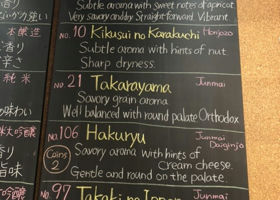 Subtle aroma with sweet notes of apricot.
Very savory and by Straight-forward. Vibrant.
本醸造
No. 10 Kikusui no Karakuchi Honjozo
香り
辛さ
Subtle aroma with hints of nut.
Sharp dryness.
純米
No. 21 Takarayama Junmai
Savory grain aroma
味わい
Well balanced with round palate Orthodox
米大吟醸
No. 106 Hakuryu Junmai Daiginjo
香り
旨味
Coins 2
Savory aroma with hints of
Cream cheese.
Gentle and round on the palate.
No. 97 Junmai